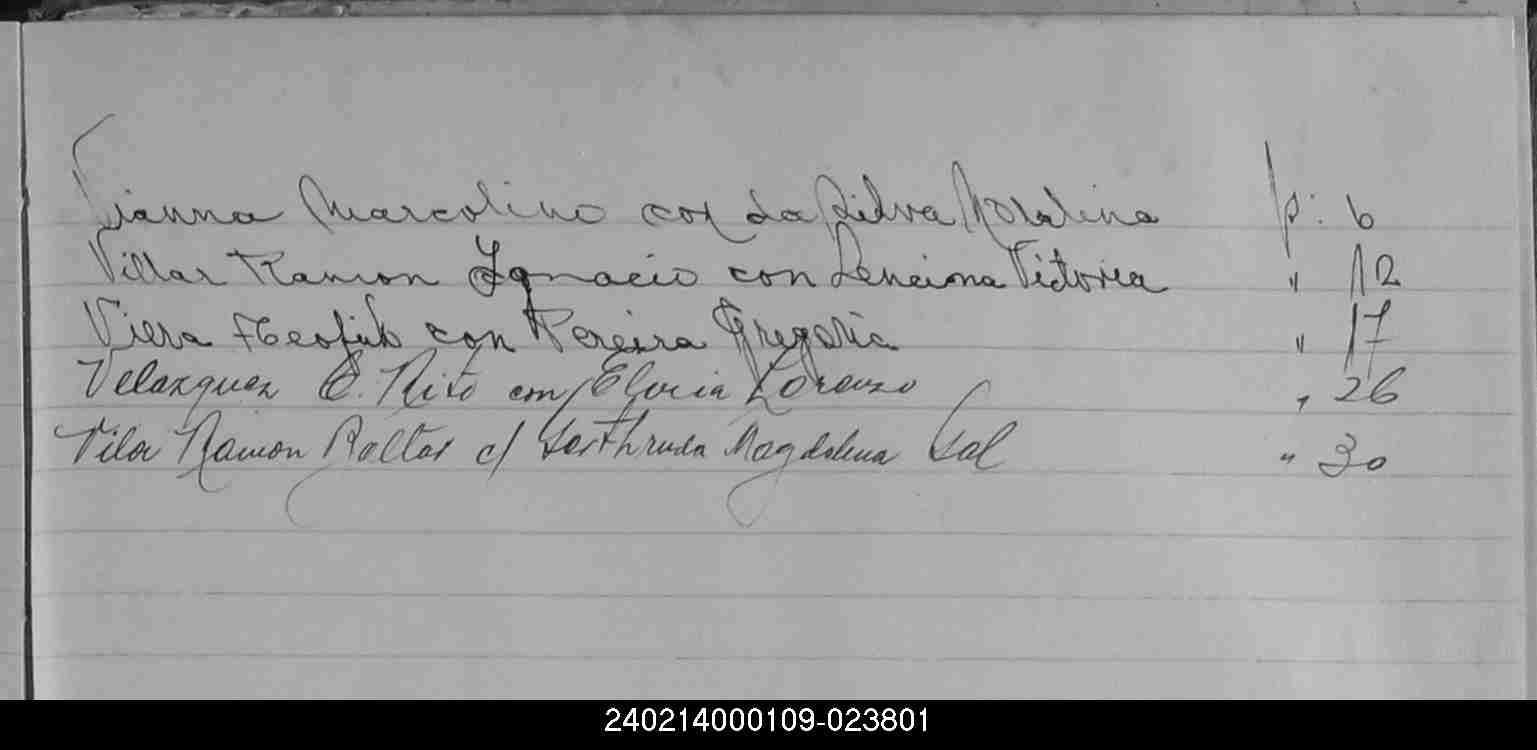 Vianna Marcolino con da Silva Noralina p. 6
Villar Ramon Ignacio con Lenciona Victoria " 12
Viera Teofilo con Pereira Gregoria " 17
Velazquez C. Rito con Elvira Lorenzo " 26
Vila Ramon Baltar c/ Magdalena Sol " 30
240214000109-023801